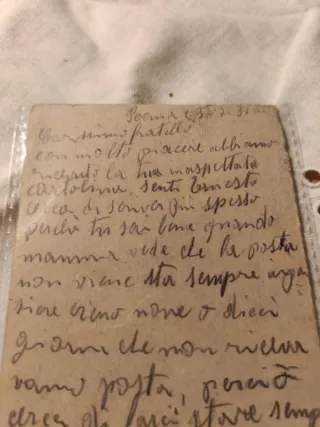 Carissimo fratello
con molto piacere abbiamo
ricevuto la tua inaspettata
cartolina, senti Ernesto
cerca di scriver più spesso
perchè tu sai bene quando
mamma vede che la posta
non viene sta sempre in
erano nove o dieci
giorni che non riceve
vamo posta, perciò
cerca di stare